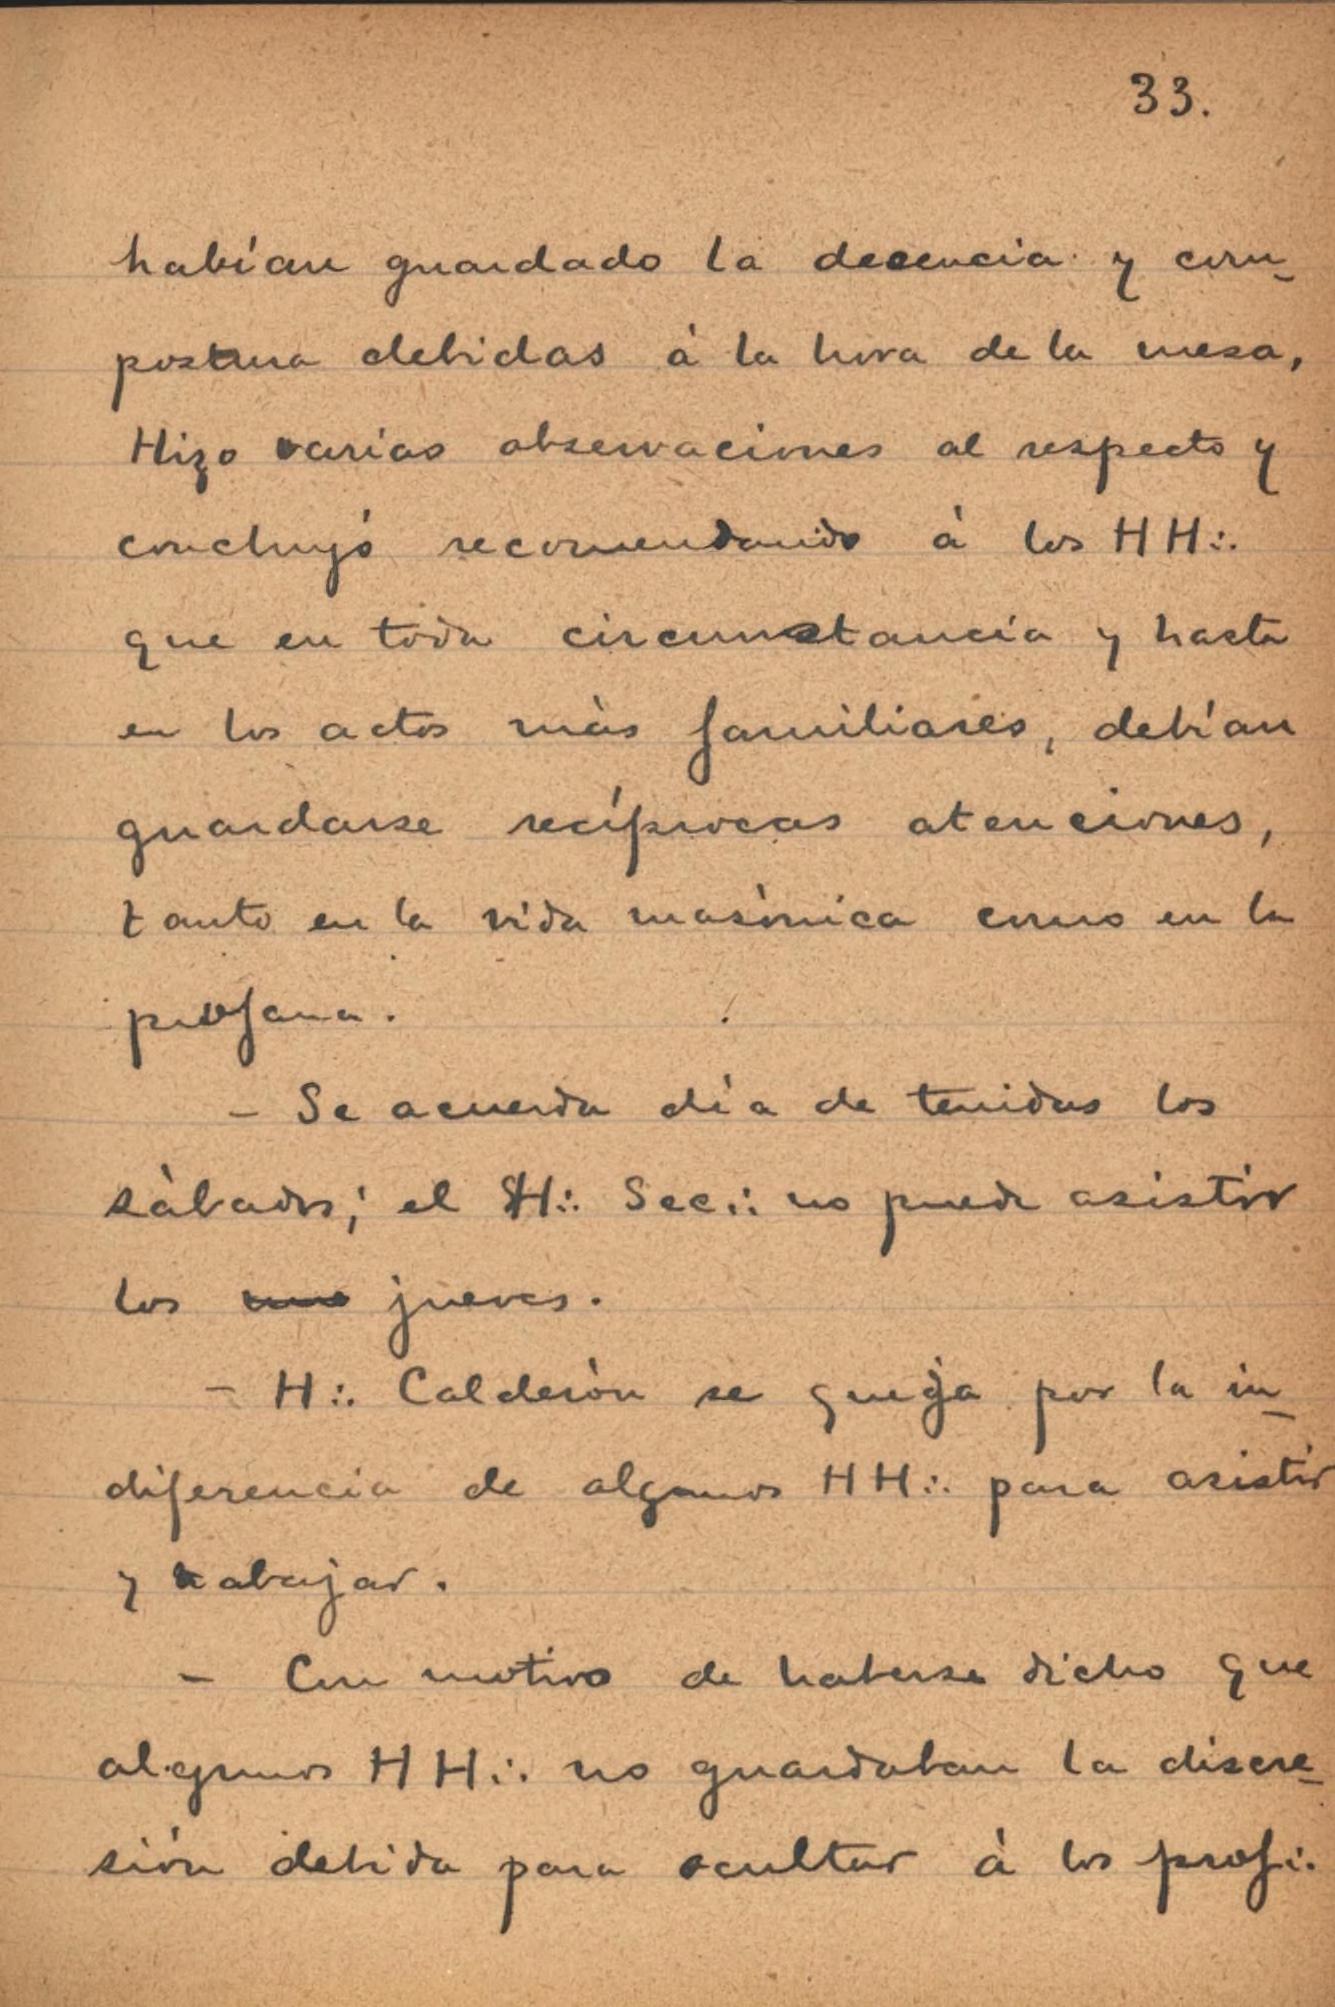 33.
habían guardado la decencia y com-
postura debidas à la hora de la mesa,
Hizo varias observaciones al respecto y
concluyó recomendando à los HH∴
que en toda circunstancia y hasta
en los actos màs familiares, debían
guardarse recíprocas atenciones,
tanto en la vida masònica como en la
profana.
- Se acuerda dìa de tenidas los
sàbados; el H∴ Sec∴ no puede asistir
los jueves.
- H∴ Calderòn se queja por la in-
diferencia de algunos HH∴ para asistir
y trabajar.
- Con motivo de haberse dicho que
algunos HH∴ no guardaban la discre-
sión debida para ocultar à los prof∴